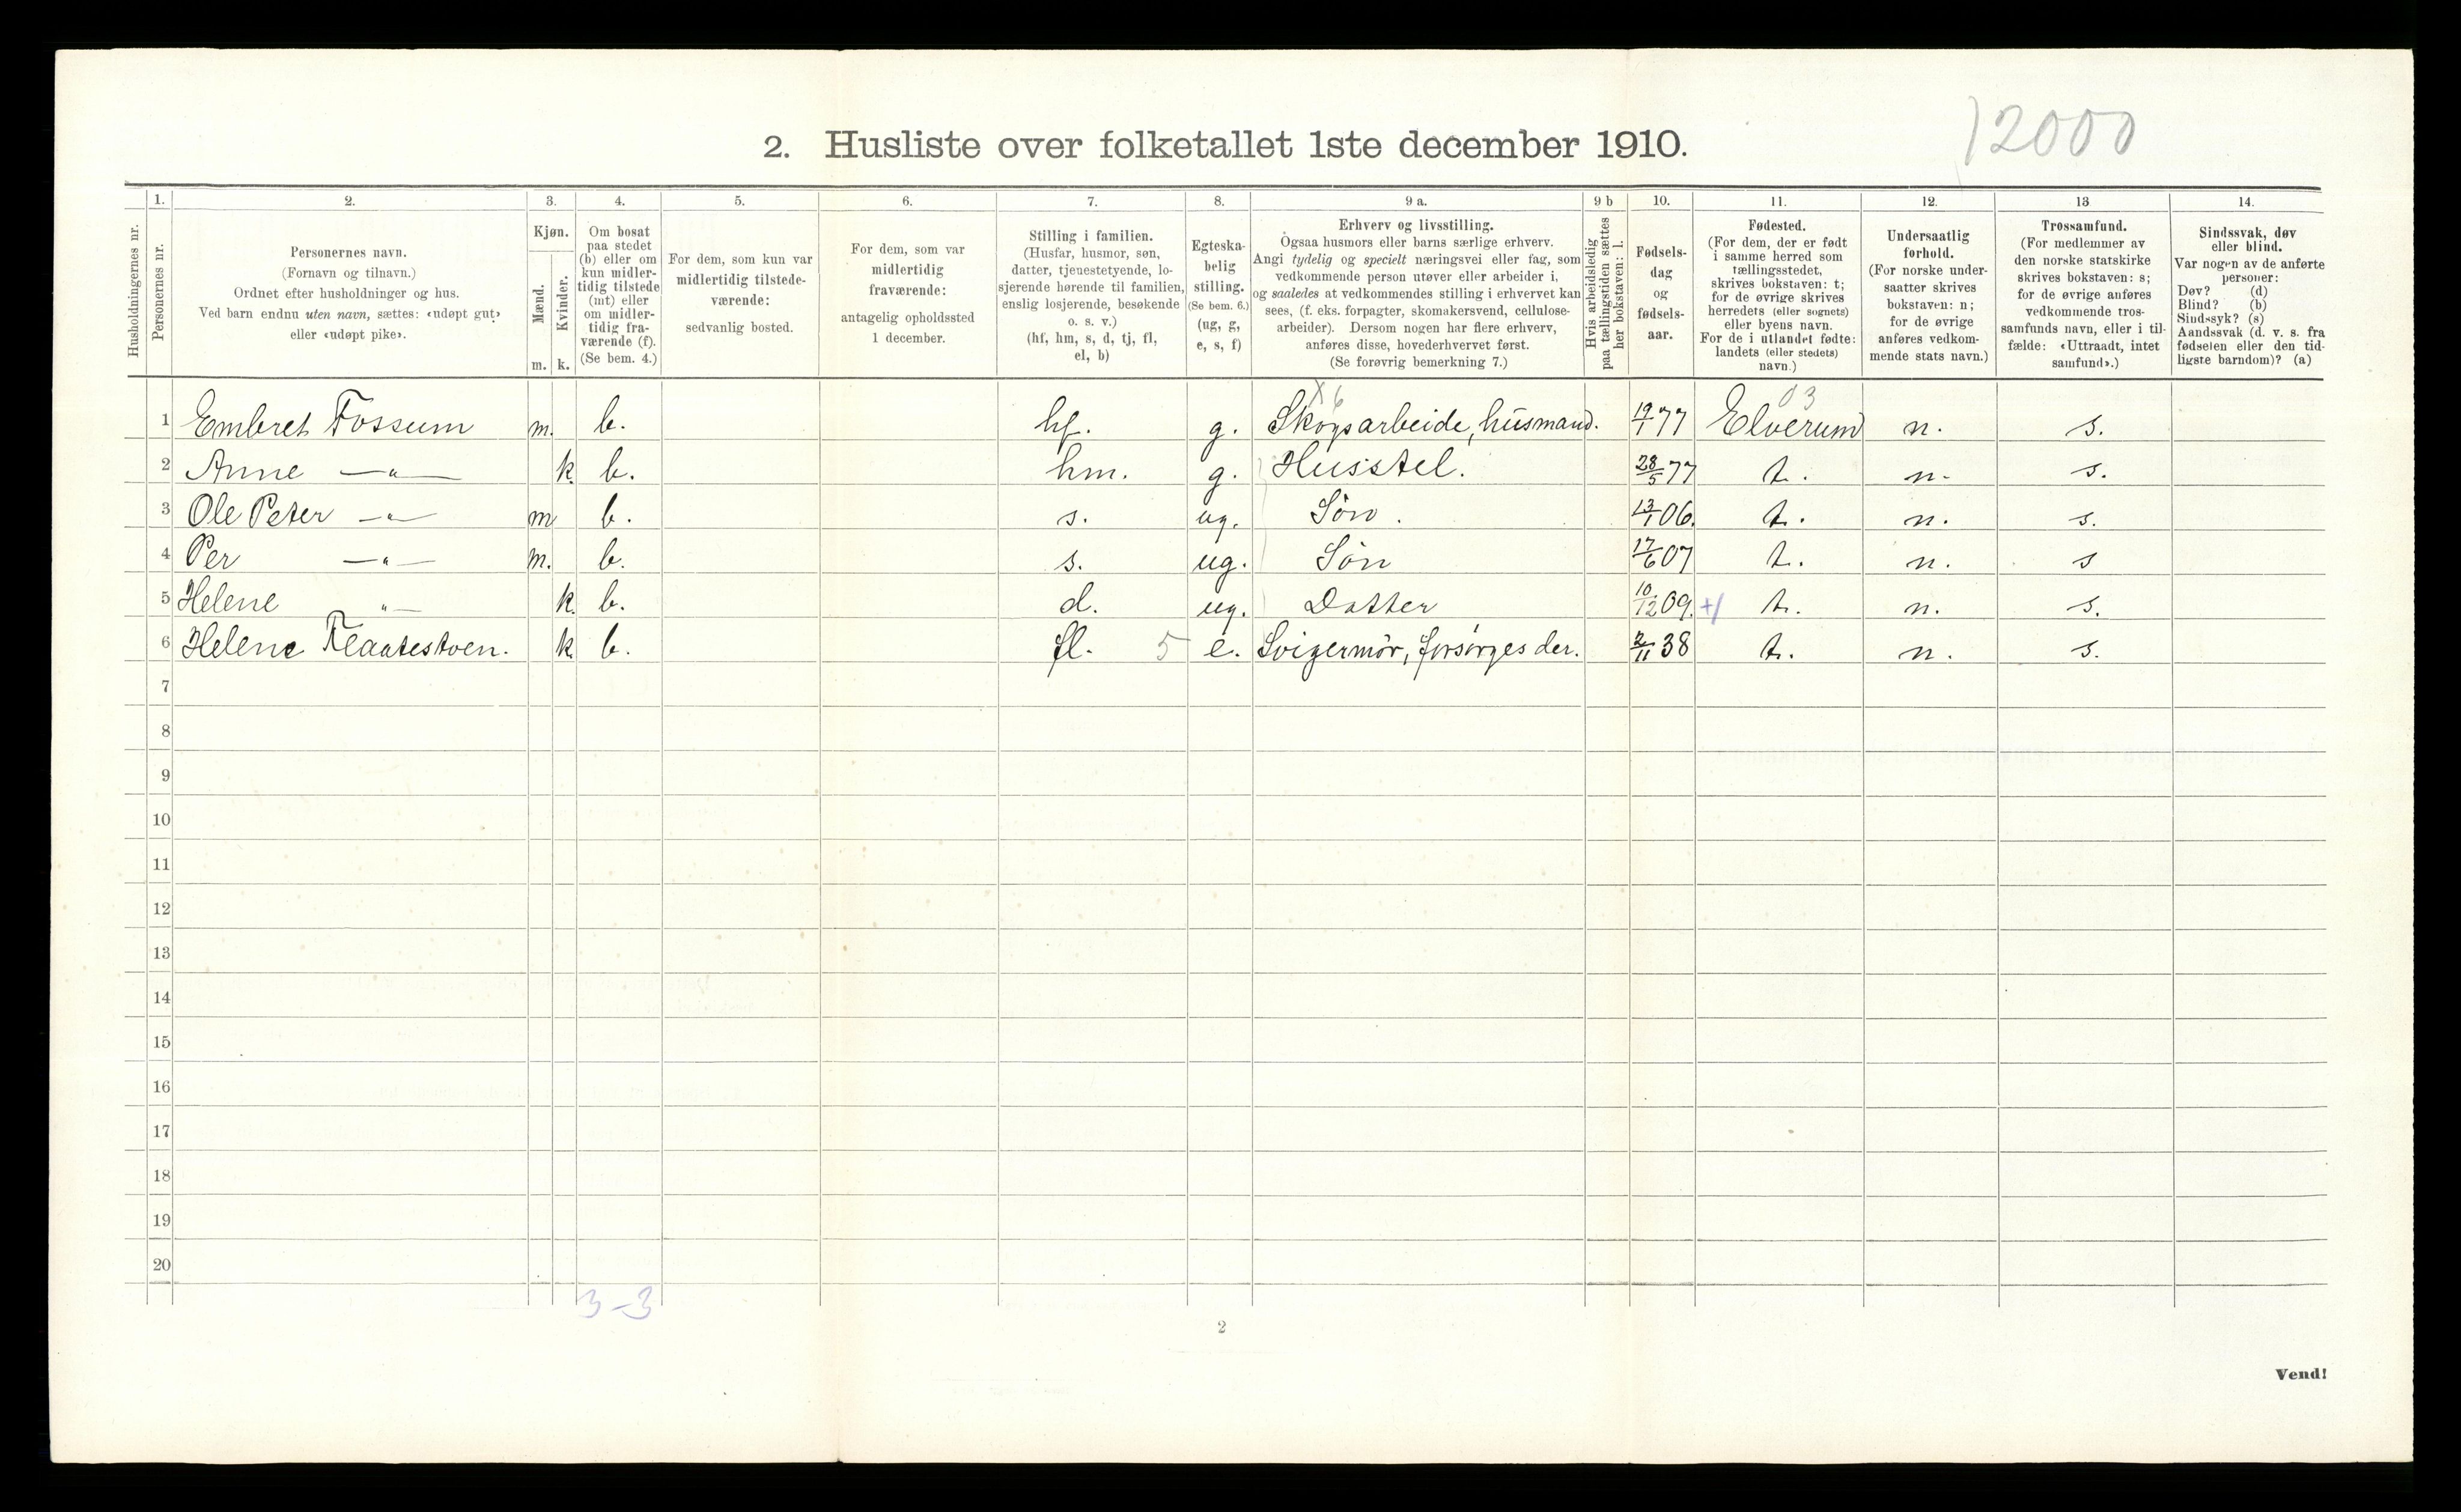 12000
2. Husliste over folketallet 1ste december 1910.
Husholdningernes nr.
1. Personernes nr.
2. Personernes navn.
(Fornavn og tilnavn.)
Ordnet efter husholdninger og hus.
Ved barn endnu uten navn, sættes: «udøpt gut»
eller «udøpt pike».
3. Kjøn.
Mænd. Kvinder.
m. k.
4. Om bosat
paa stedet
(b) eller om
kun midler-
tidig tilstede
(mt) eller
om midler-
tidig fra-
værende (f).
(Se bem. 4.)
5. For dem, som kun var
midlertidig tilstede-
værende:
sedvanlig bosted.
6. For dem, som var
midlertidig
fraværende:
antagelig opholdssted
1 december.
7. Stilling i familien.
(Husfar, husmor, søn,
datter, tjenestetyende, lo-
sjerende hørende til familien,
enslig losjerende, besøkende
o. s. v.)
(hf, hm, s, d, tj, fl,
el, b)
8. Egteska-
belig
stilling.
(Se bem. 6.)
(ug, g,
e, s, f)
9 a. Erhverv og livsstilling.
Ogsaa husmors eller barns særlige erhverv.
Angi tydelig og specielt næringsvei eller fag, som
vedkommende person utøver eller arbeider i,
og saaledes at vedkommendes stilling i erhvervet kan
sees, (f. eks. forpagter, skomakersvend, cellulose-
arbeider). Dersom nogen har flere erhverv,
anføres disse, hovederhvervet først.
(Se forøvrig bemerkning 7.)
9 b Hvis arbeidsledig
paa tællingstiden sættes
her bokstaven: l.
10. Fødsels-
dag
og
fødsels-
aar.
11. Fødested.
(For dem, der er født
i samme herred som
tællingsstedet,
skrives bokstaven: t;
for de øvrige skrives
herredets (eller sognets)
eller byens navn.
For de i utlandet fødte:
landets (eller stedets)
navn.)
12. Undersaatlig
forhold.
(For norske under-
saatter skrives
bokstaven: n;
for de øvrige
anføres vedkom-
mende stats navn.)
13 Trossamfund.
(For medlemmer av
den norske statskirke
skrives bokstaven: s;
for de øvrige anføres
vedkommende tros-
samfunds navn, eller i til-
fælde: «Uttraadt, intet
samfund».)
14. Sindssvak, døv
eller blind.
Var nogen av de anførte
personer:
Døv? (d)
Blind? (b)
Sindssyk? (s)
Aandssvak (d. v. s. fra
fødselen eller den tid-
ligste barndom)? (a)
X 6 03
1 Embret Fossum m. b. hf. g. Skogsarbeide, husmand. 19/1 77 Elverum n. s.
2 Anne —„— k b. hm. g. Husstel. 28/5 77 t. n. s.
3 Ole Peter —„— m b. s. ug. Sön. 13/1 06. t. n. s.
4 Per —„— m. b. s. ug. Sön 17/6 07 t. n. s
5 Helene „— k. b. d. ug. Datter 10/12 09. +/ t. n. s.
6 Helene Flaatestoen. k b. fl. 5 e. Svigermör, forsörges der. 2/11 38 t. n. s.
7
8
9
10
11
12
13
14
15
16
17
18
19
20
3-3
2
Vend!